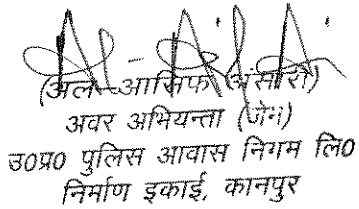 (अल-आसिफ अंसारी)
अवर अभियन्ता (जेन)
उ0प्र0 पुलिस आवास निगम लि0
निर्माण इकाई, कानपुर